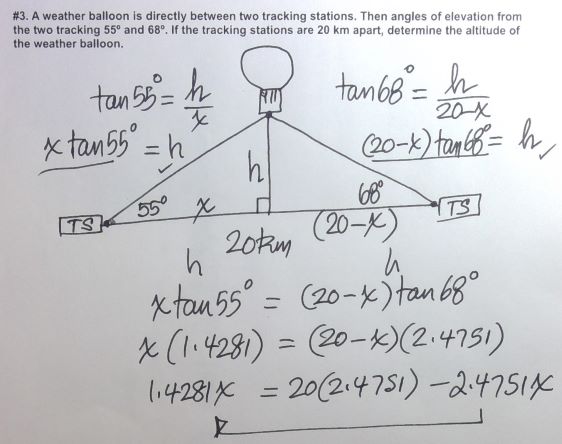 #3. A weather balloon is directly between two tracking stations. Then angles of elevation from
the two tracking 55° and 68°. If the tracking stations are 20 km apart, determine the altitude of
the weather balloon.
tan 55° = h/x
tan 68° = h/20-x
x tan 55° = h
(20-x) tan 68° = h
h
55°
x
68°
TS
TS
20km
(20-x)
h
h
x tan 55° = (20-x) tan 68°
x (1.4281) = (20-x)(2.4751)
1.4281x = 20(2.4751) - 2.4751x